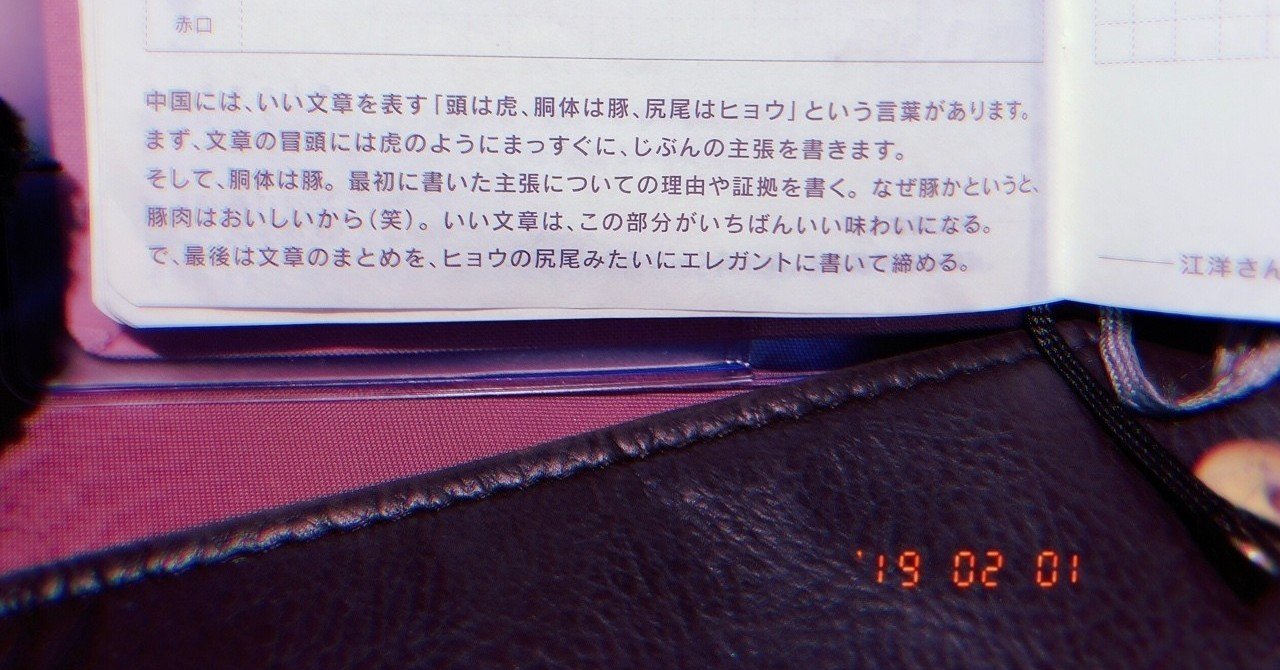 赤口
中国には、いい文章を表す「頭は虎、胴体は豚、尻尾はヒョウ」という言葉があります。
まず、文章の冒頭には虎のようにまっすぐに、じぶんの主張を書きます。
そして、胴体は豚。最初に書いた主張についての理由や証拠を書く。なぜ豚かというと、
豚肉はおいしいから(笑)。いい文章は、この部分がいちばんいい味わいになる。
で、最後は文章のまとめを、ヒョウの尻尾みたいにエレガントに書いて締める。
――江洋さん
'19 02 01